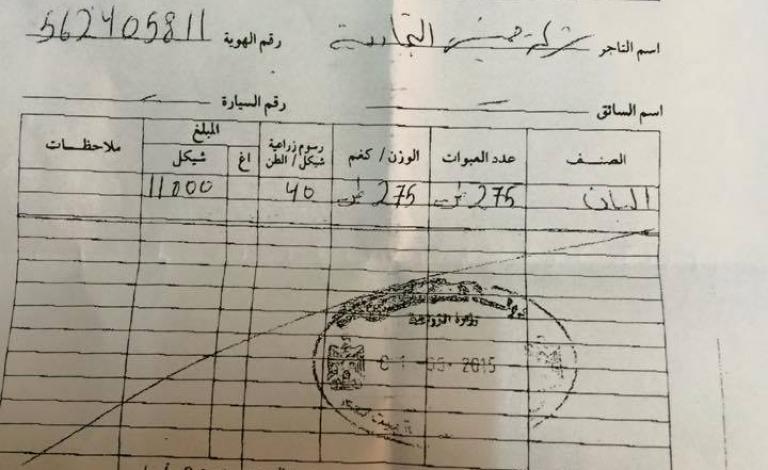 اسم التاجر شركة حسنين التجارية رقم الهوية 562405811
اسم السائق رقم السيارة
الصنف عدد العبوات الوزن/ كغم رسوم زراعية شيكل/ الطن المبلغ ملاحظات
اغ شيكل
البان 275 طن 275 طن 40 11000
وزارة الزراعة
01 -05- 2015